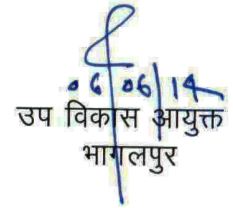 06/06/14
उप विकास आयुक्त
भागलपुर